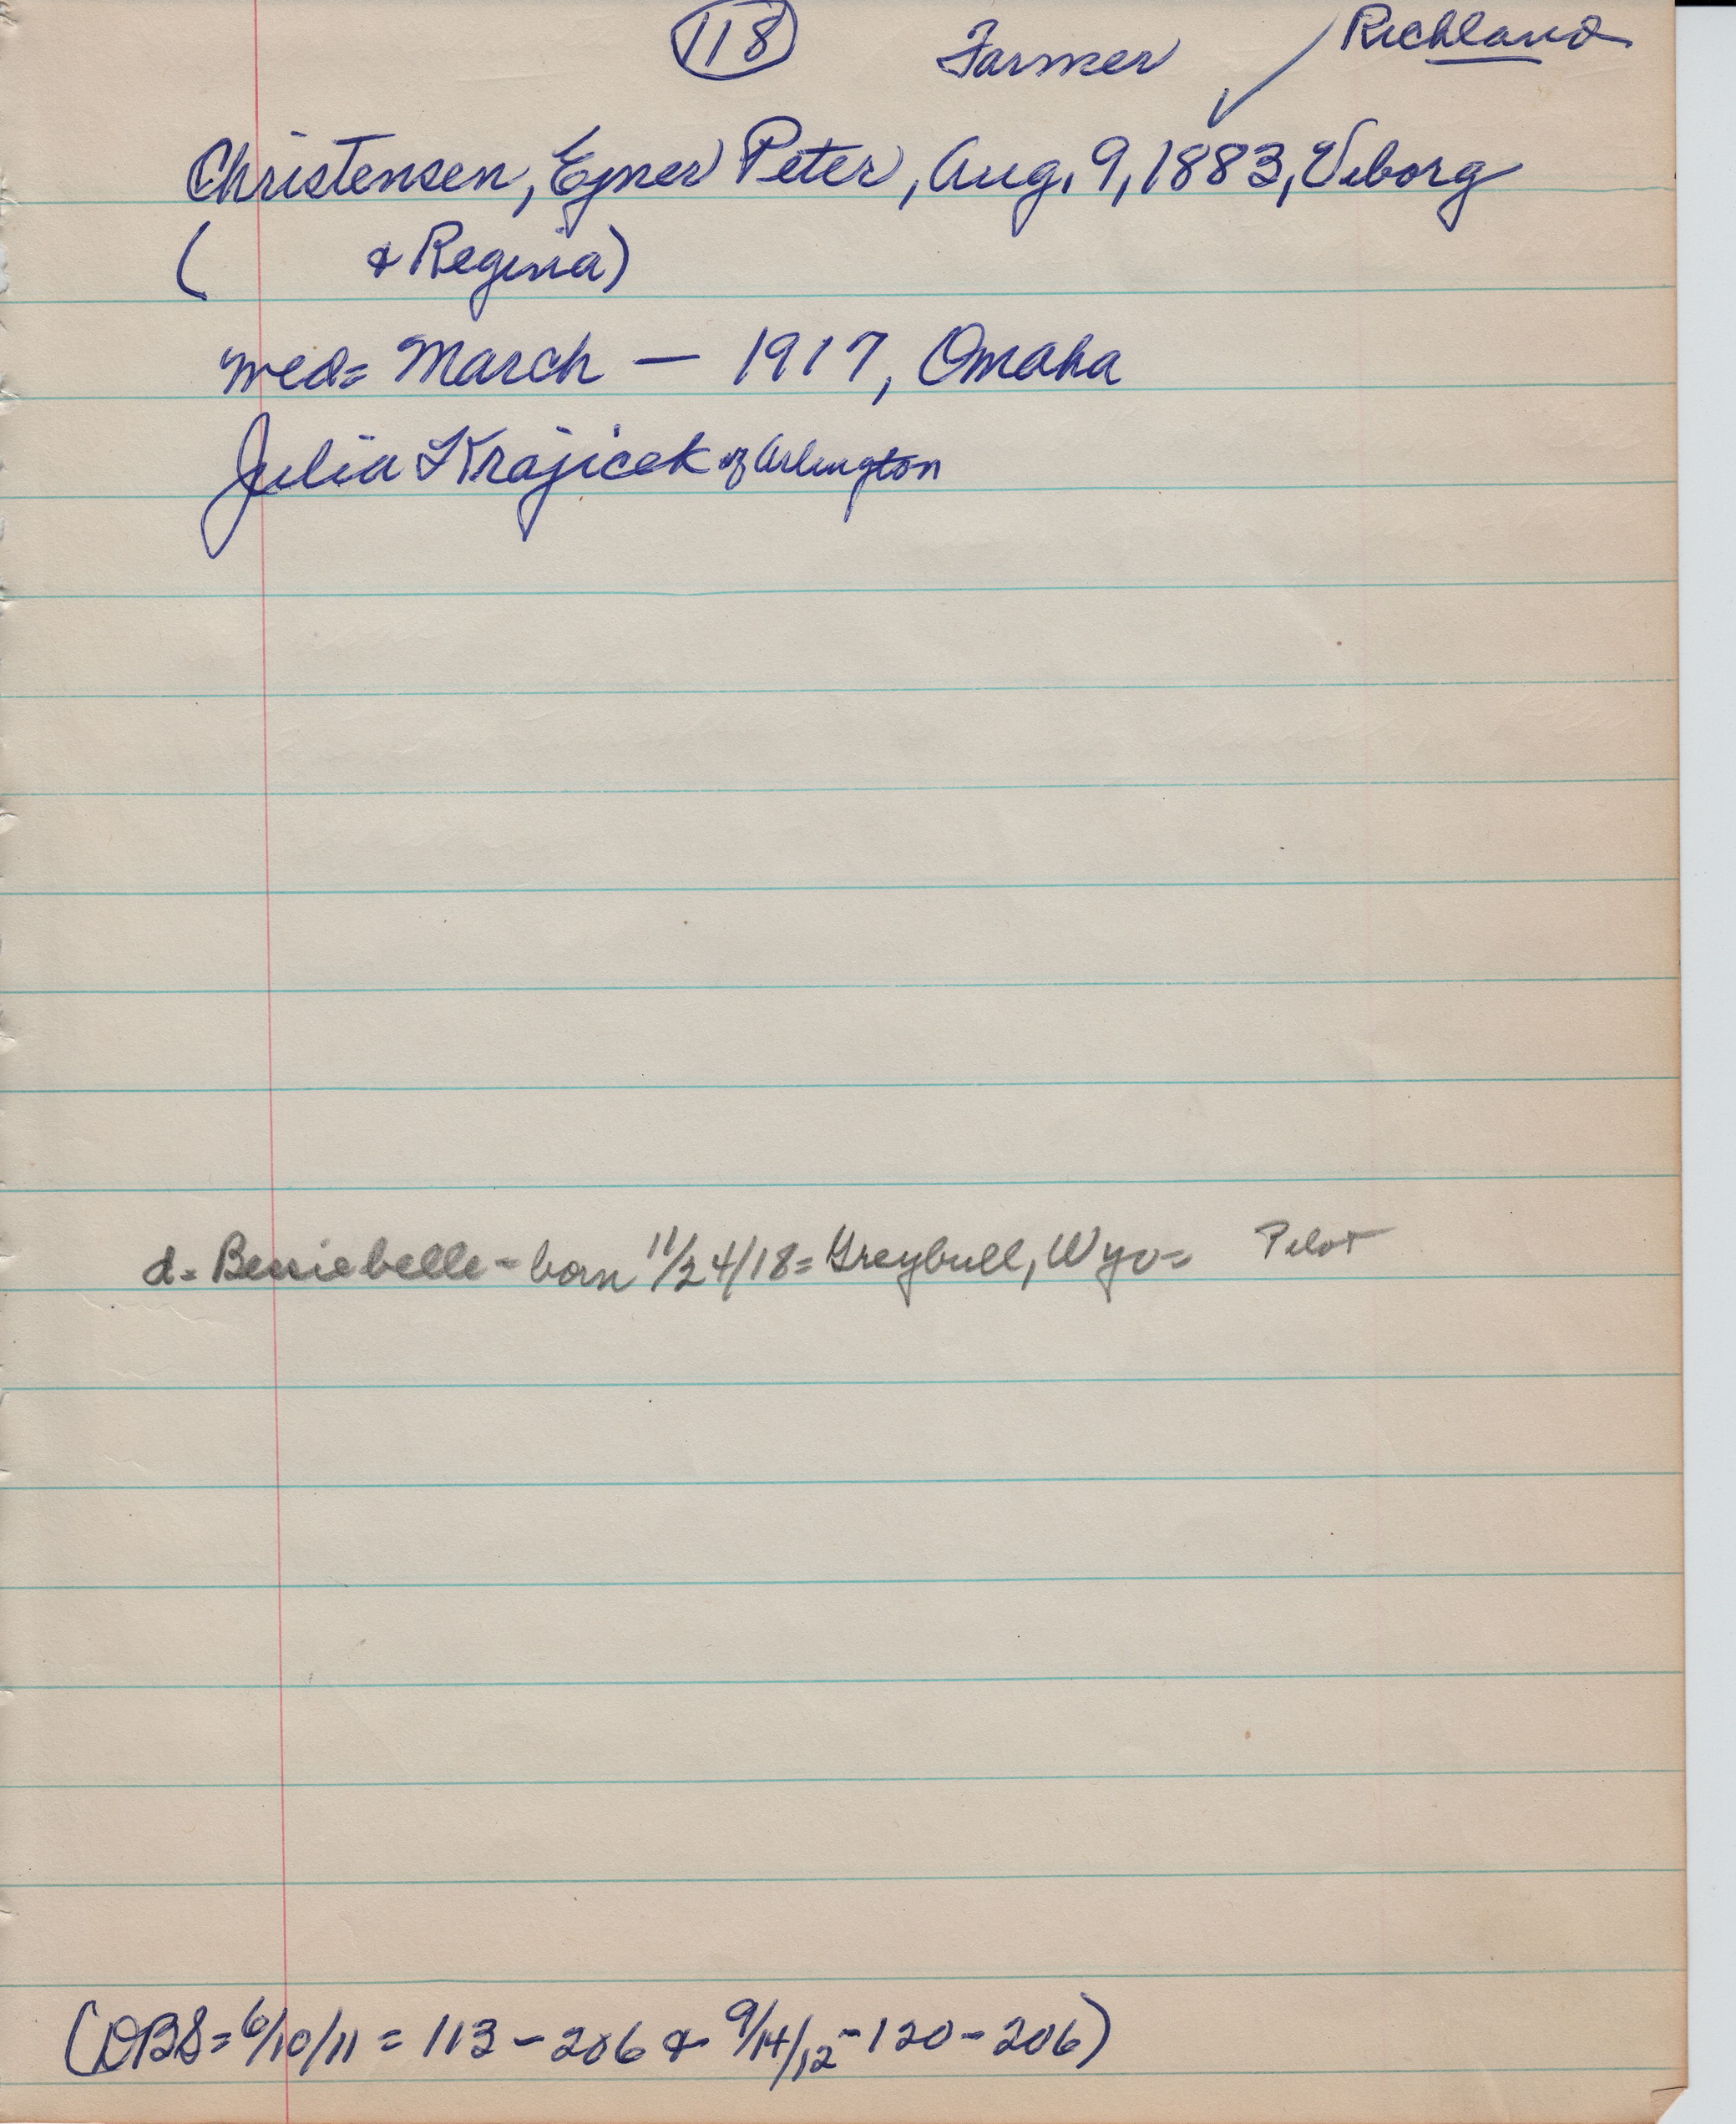 118 Farmer ✓ Richland
Christensen, Ejner Peter, Aug. 9, 1883, Viborg
( & Regina)
wed= March — 1917, Omaha
Julia Krajicek of Arlington
d= Bessiebelle - born 11/24/18= Greybull, Wyo= Pilot
(DBS= 6/10/11 = 113 - 206 & 9/14/12 - 120 - 206)